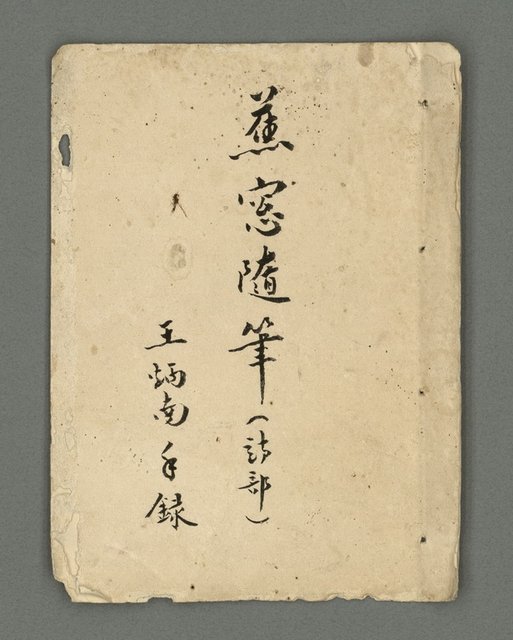 蕉窓隨筆（詩部）
王炳南手錄